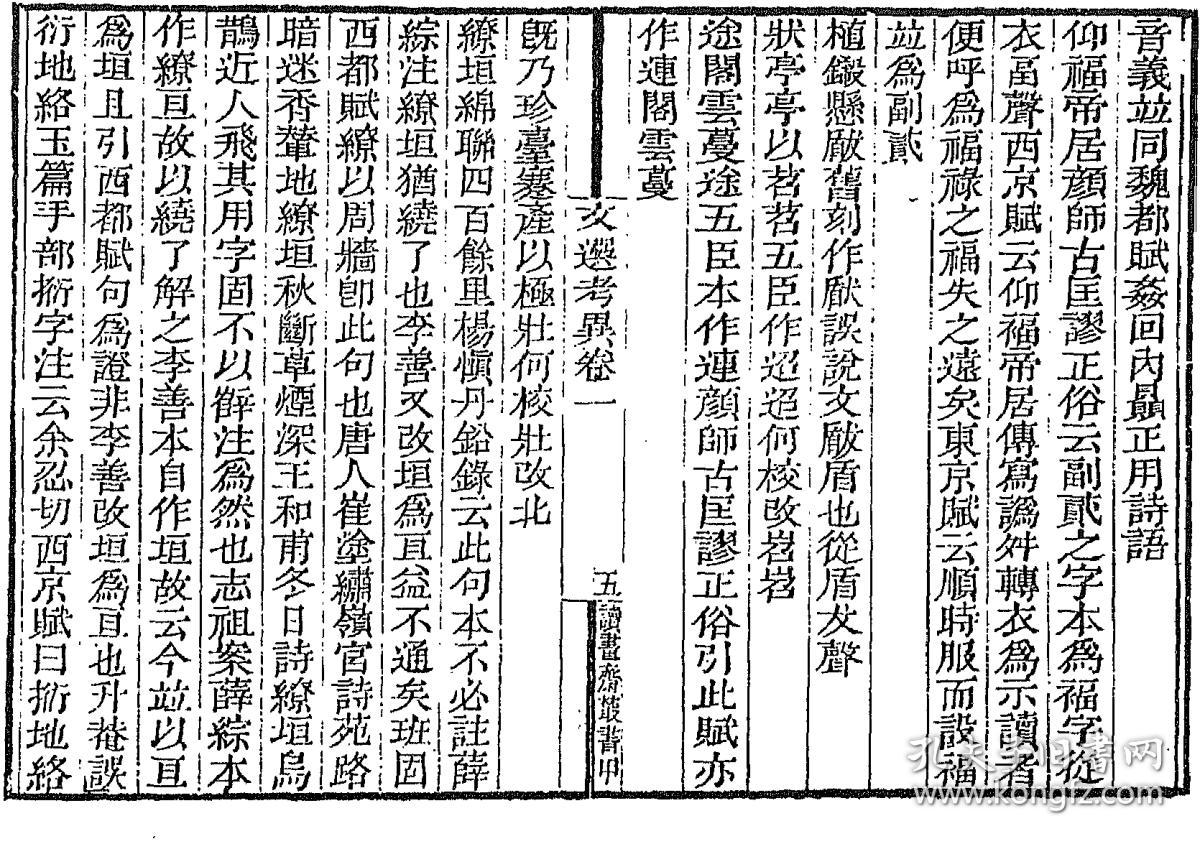 音義竝同魏都賦姦回內贔正用詩語
仰福帝居顏師古匡謬正俗云副貳之字本爲福字從
衣畐聲西京賦云仰福帝居傳寫譌舛轉衣爲示讀者
便呼爲福祿之福失之遠矣東京賦云順時服而設福
竝爲副貳
植鎩懸瞂舊刻作㕹誤說文瞂盾也從盾犮聲
狀亭亭以苕苕五臣作迢迢何校改岧岧
途閣雲蔓途五臣本作連顏師古匡謬正俗引此賦亦
作連閣雲蔓
文選考異卷一
五
讀畫齋叢書甲
旣乃珍臺蹇產以極壯何校壯改北
繚垣綿聯四百餘里楊愼丹鉛錄云此句本不必註薛
綜注繚垣猶繞了也李善又改垣爲亘益不通矣班固
西都賦繚以周牆卽此句也唐人崔塗繡嶺宮詩苑路
暗迷香輦地繚垣秋斷草煙深王和甫冬日詩繚垣烏
鵲近人飛其用字固不以薛注爲然也志祖案薛綜本
作繚亘故以繞了解之李善本自作垣故云今竝以亘
爲垣且引西都賦句爲證非李善改垣爲亘也升菴誤
衍地絡玉篇手部㧕字注云余忍切西京賦曰㧕地絡
孔夫子旧书网
www.kongfz.com